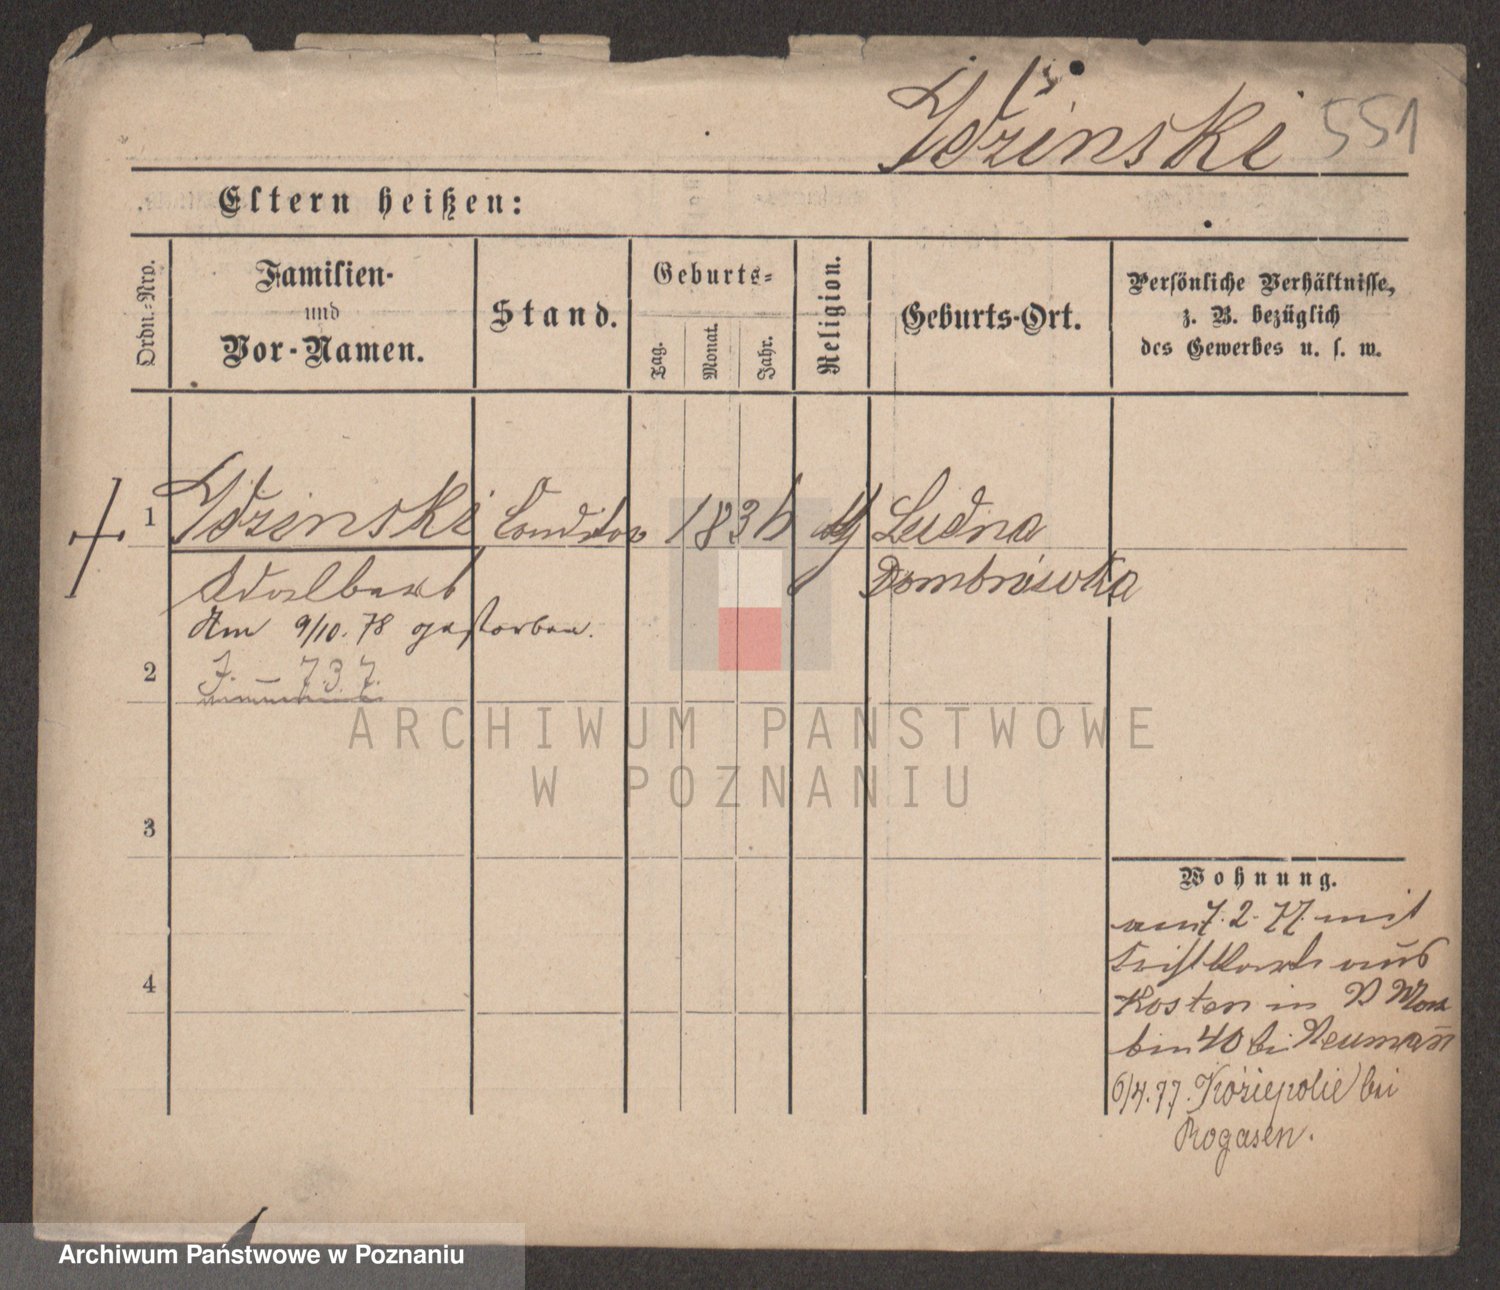 Idzinski 551
Eltern heißen:
Ordn.-Nro.
Familien-
und
Vor-Namen.
Stand.
Geburts-
Tag.
Monat.
Jahr.
Religion.
Geburts-Ort.
Persönliche Verhältnisse,
z. B. bezüglich
des Gewerbes u. s. w.
1 Idzinski Conditor 1836 Ludna
Adalbert Dombrówka
Am 9/10. 78 gestorben.
2 J. — 737.
3
4
Wohnung.
am 7. 2. 77. mit
aus
Kosten in
40 bei Neumann
6/4. 77. Koziepolie bei
Rogasen.
ARCHIWUM PAŃSTWOWE
W POZNANIU
Archiwum Państwowe w Poznaniu